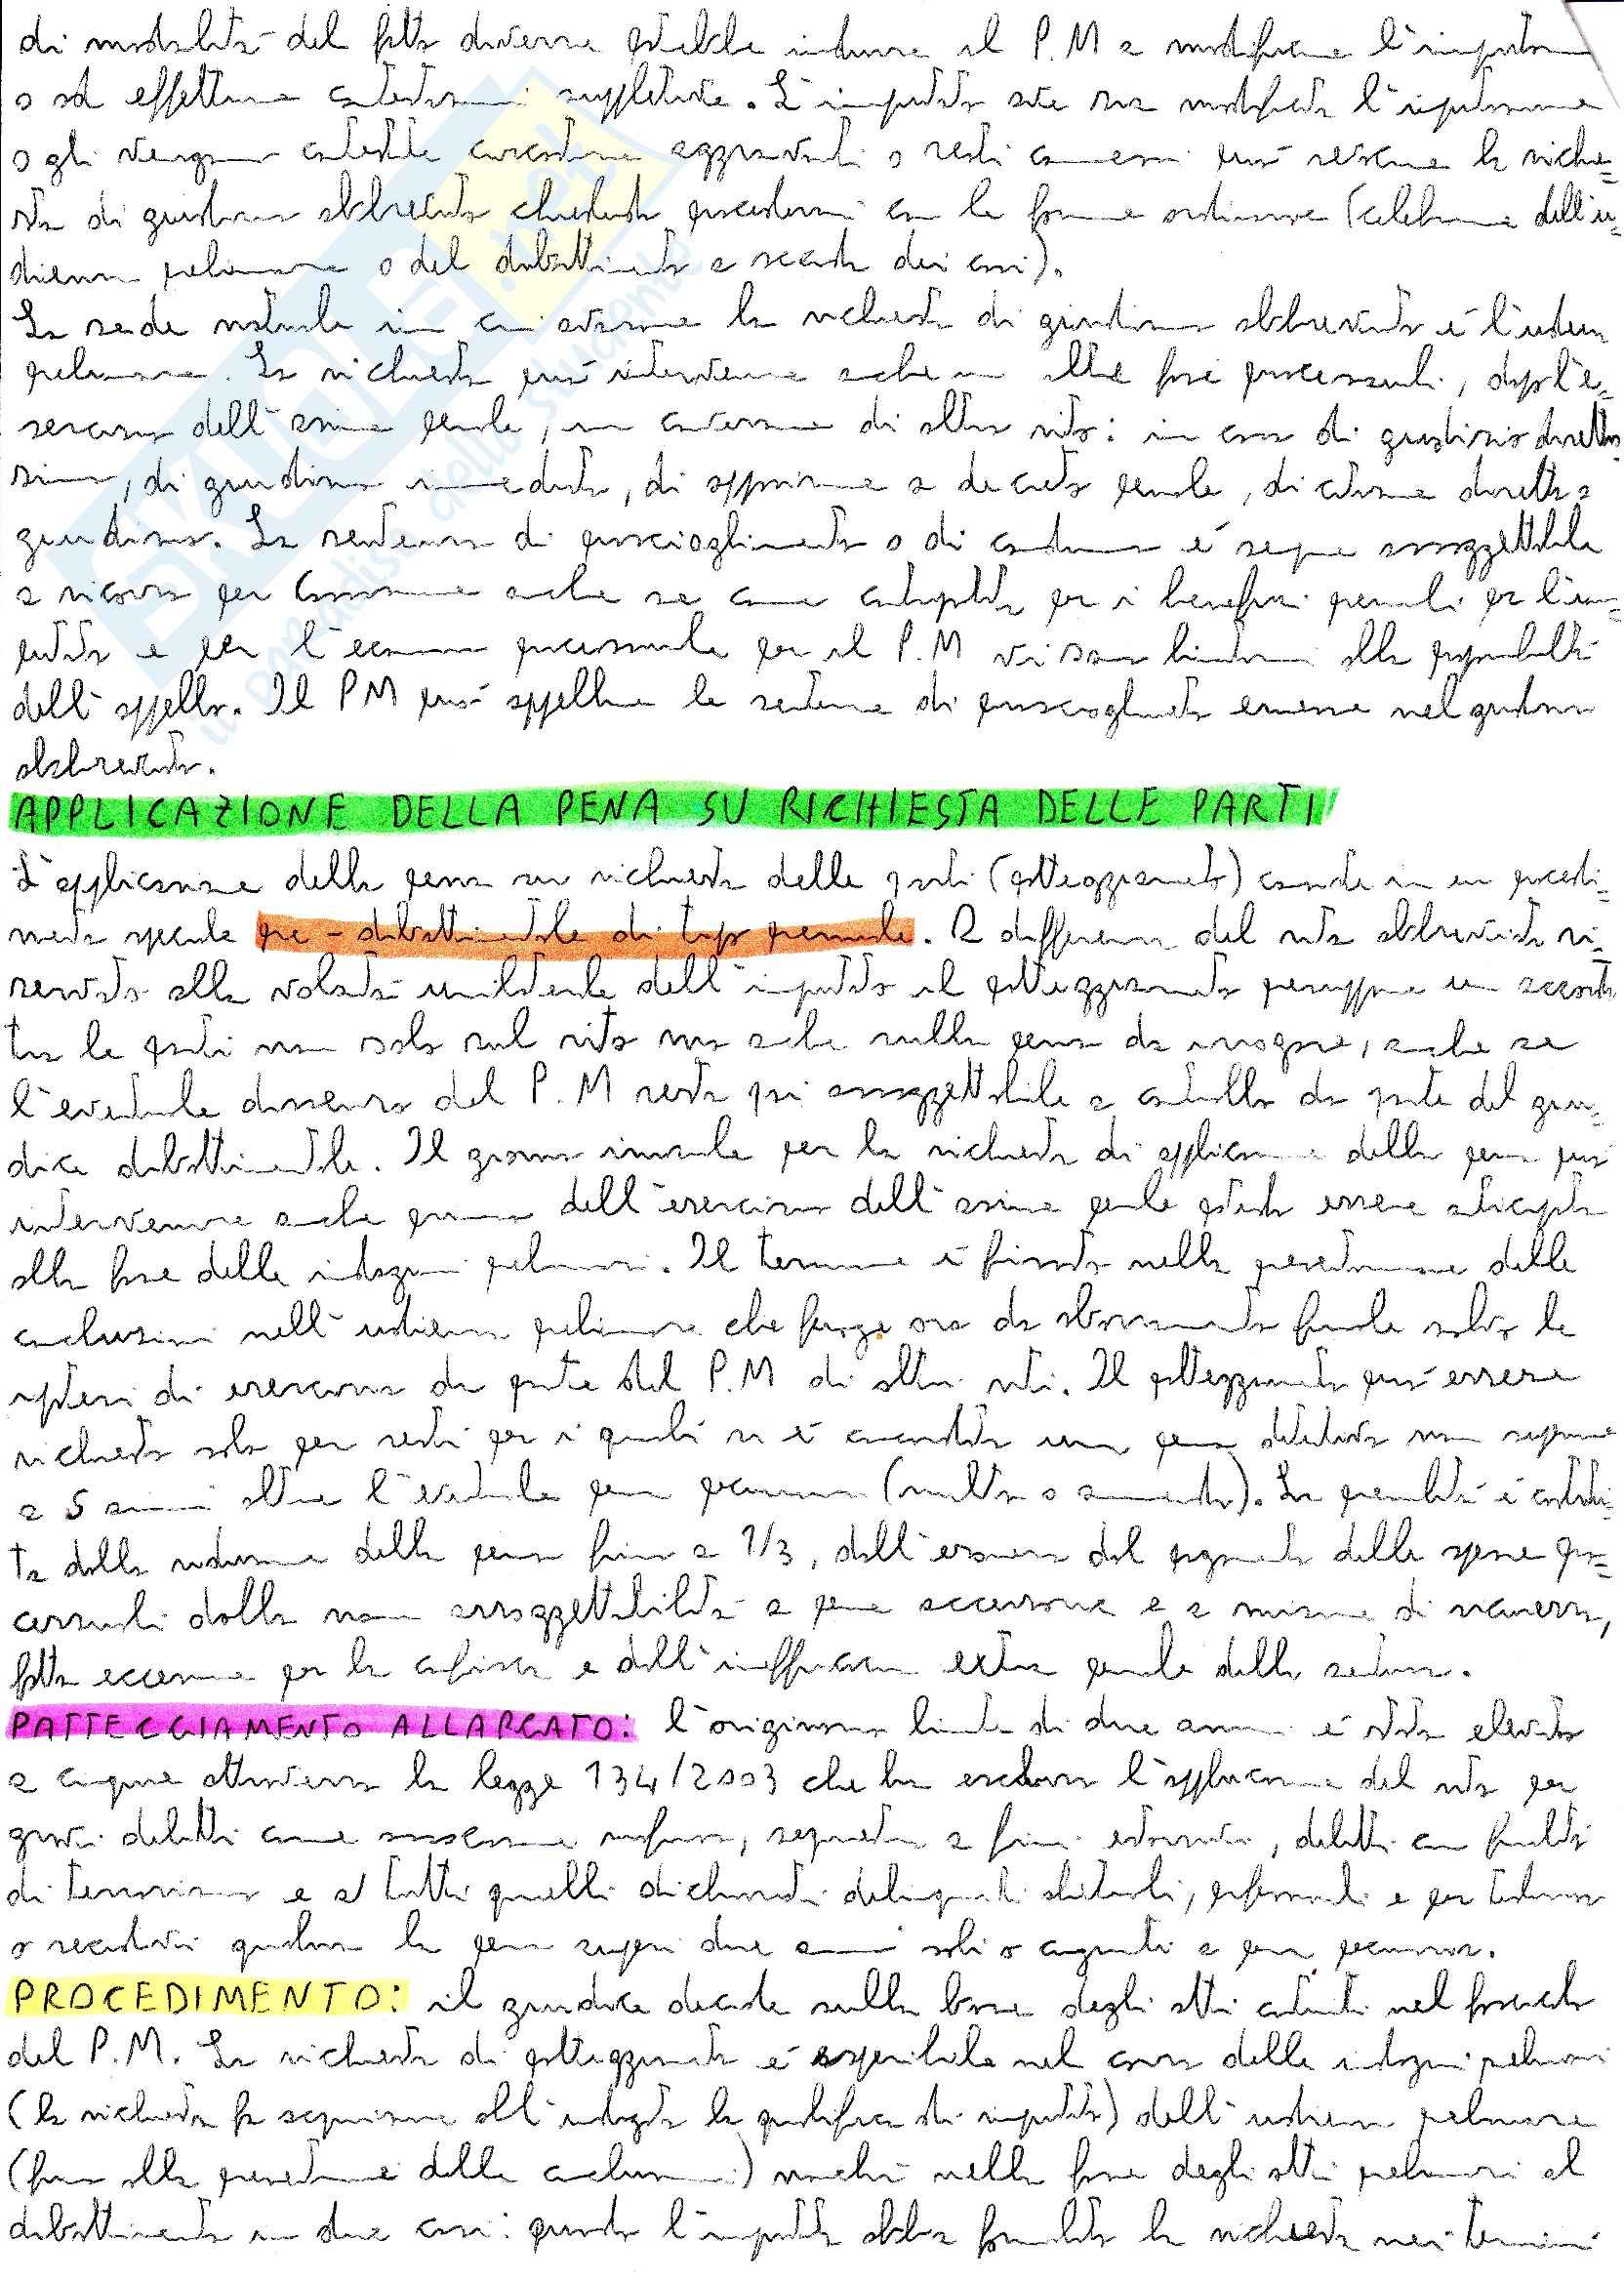 di modalità del fatto diverse potrebbe indurre il P.M a modificare l'imputazione
o ad effettuare contestazioni suppletive. L'imputato ove sia modificata l'imputazione
o gli vengano contestate circostanze aggravanti o reati connessi può revocare la richie=
sta di giudizio abbreviato chiedendo procedersi con le forme ordinarie (celebrazione dell'u=
dienza preliminare o del dibattimento a seconda dei casi).
La sede naturale in cui avanzare la richiesta di giudizio abbreviato è l'udienza
preliminare. La richiesta può intervenire anche in altre fasi processuali, dopo l'e=
sercizio dell'azione penale, in conversione di altro rito: in caso di giudizio direttis=
simo, di giudizio immediato, di opposizione a decreto penale, di citazione diretta a
giudizio. La sentenza di proscioglimento o di condanna è sempre assoggettabile
a ricorso per Cassazione anche se come contropartita per i benefici penali per l'im=
putato e per l'economia processuale per il P.M vi sono limitazioni alla proponibilità
dell'appello. Il PM può appellare le sentenze di proscioglimento emesse nel giudizio
abbreviato.
APPLICAZIONE DELLA PENA SU RICHIESTA DELLE PARTI
L'applicazione della pena su richiesta delle parti (patteggiamento) consiste in un procedi=
mento speciale pre-dibattimentale di tipo premiale. A differenza del rito abbreviato ri=
servato alla volontà unilaterale dell'imputato il patteggiamento presuppone un accordo
tra le parti non solo sul rito ma anche sulla pena da irrogare, anche se
l'eventuale dissenso del P.M resta poi assoggettabile a controllo da parte del giu=
dice dibattimentale. Il giorno iniziale per la richiesta di applicazione della pena può
intervenire anche prima dell'esercizio dell'azione penale potendo essere anticipata
alla fase delle indagini preliminari. Il termine è fissato nella presentazione delle
conclusioni nell'udienza preliminare che funge ora da sbarramento finale salvo le
ipotesi di esercizio da parte del P.M di altri riti. Il patteggiamento può essere
richiesto solo per reati per i quali si è concordata una pena detentiva non superiore
a 5 anni oltre l'eventuale pena pecuniaria (multa o ammenda). La premialità è costitui=
ta dalla riduzione della pena fino a 1/3, dall'esonero dal pagamento delle spese pro=
cessuali dalla non assoggettabilità a pene accessorie e a misure di sicurezza,
fatta eccezione per la confisca e dall'inefficacia extra penale della sentenza.
PATTEGGIAMENTO ALLARGATO: l'originario limite di due anni è stato elevato
a cinque attraverso la legge 134/2003 che ha escluso l'applicazione del rito per
gravi delitti come associazione mafiosa, sequestro a fini estorsivi, delitti con finalità
di terrorismo e a tutti quelli dichiarati delinquenti abituali, professionali e per tendenza
o recidivi qualora la pena superi due anni soli o congiunti a pena pecuniaria.
PROCEDIMENTO: il giudice decide sulla base degli atti contenuti nel fascicolo
del P.M. La richiesta di patteggiamento è esperibile nel corso delle indagini preliminari
(la richiesta fa acquisire all'indagato la qualifica di imputato) dell'udienza preliminare
(fino alla presentazione delle conclusioni) nonché nella fase degli atti preliminari al
dibattimento in due casi: quando l'imputato abbia formulato la richiesta nei termini